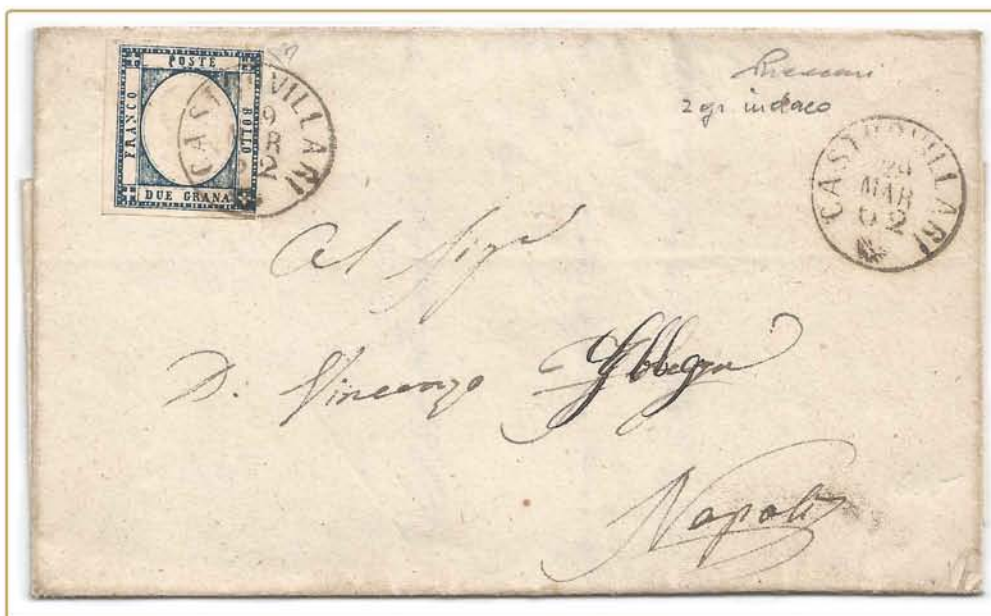 POSTE
FRANCO
BOLLO
DUE GRANA
CASTROVILLARI
2 gr. indaco
CASTROVILLARI
29
MAR
62
Al Sigr
D. Vincenzo
Napoli